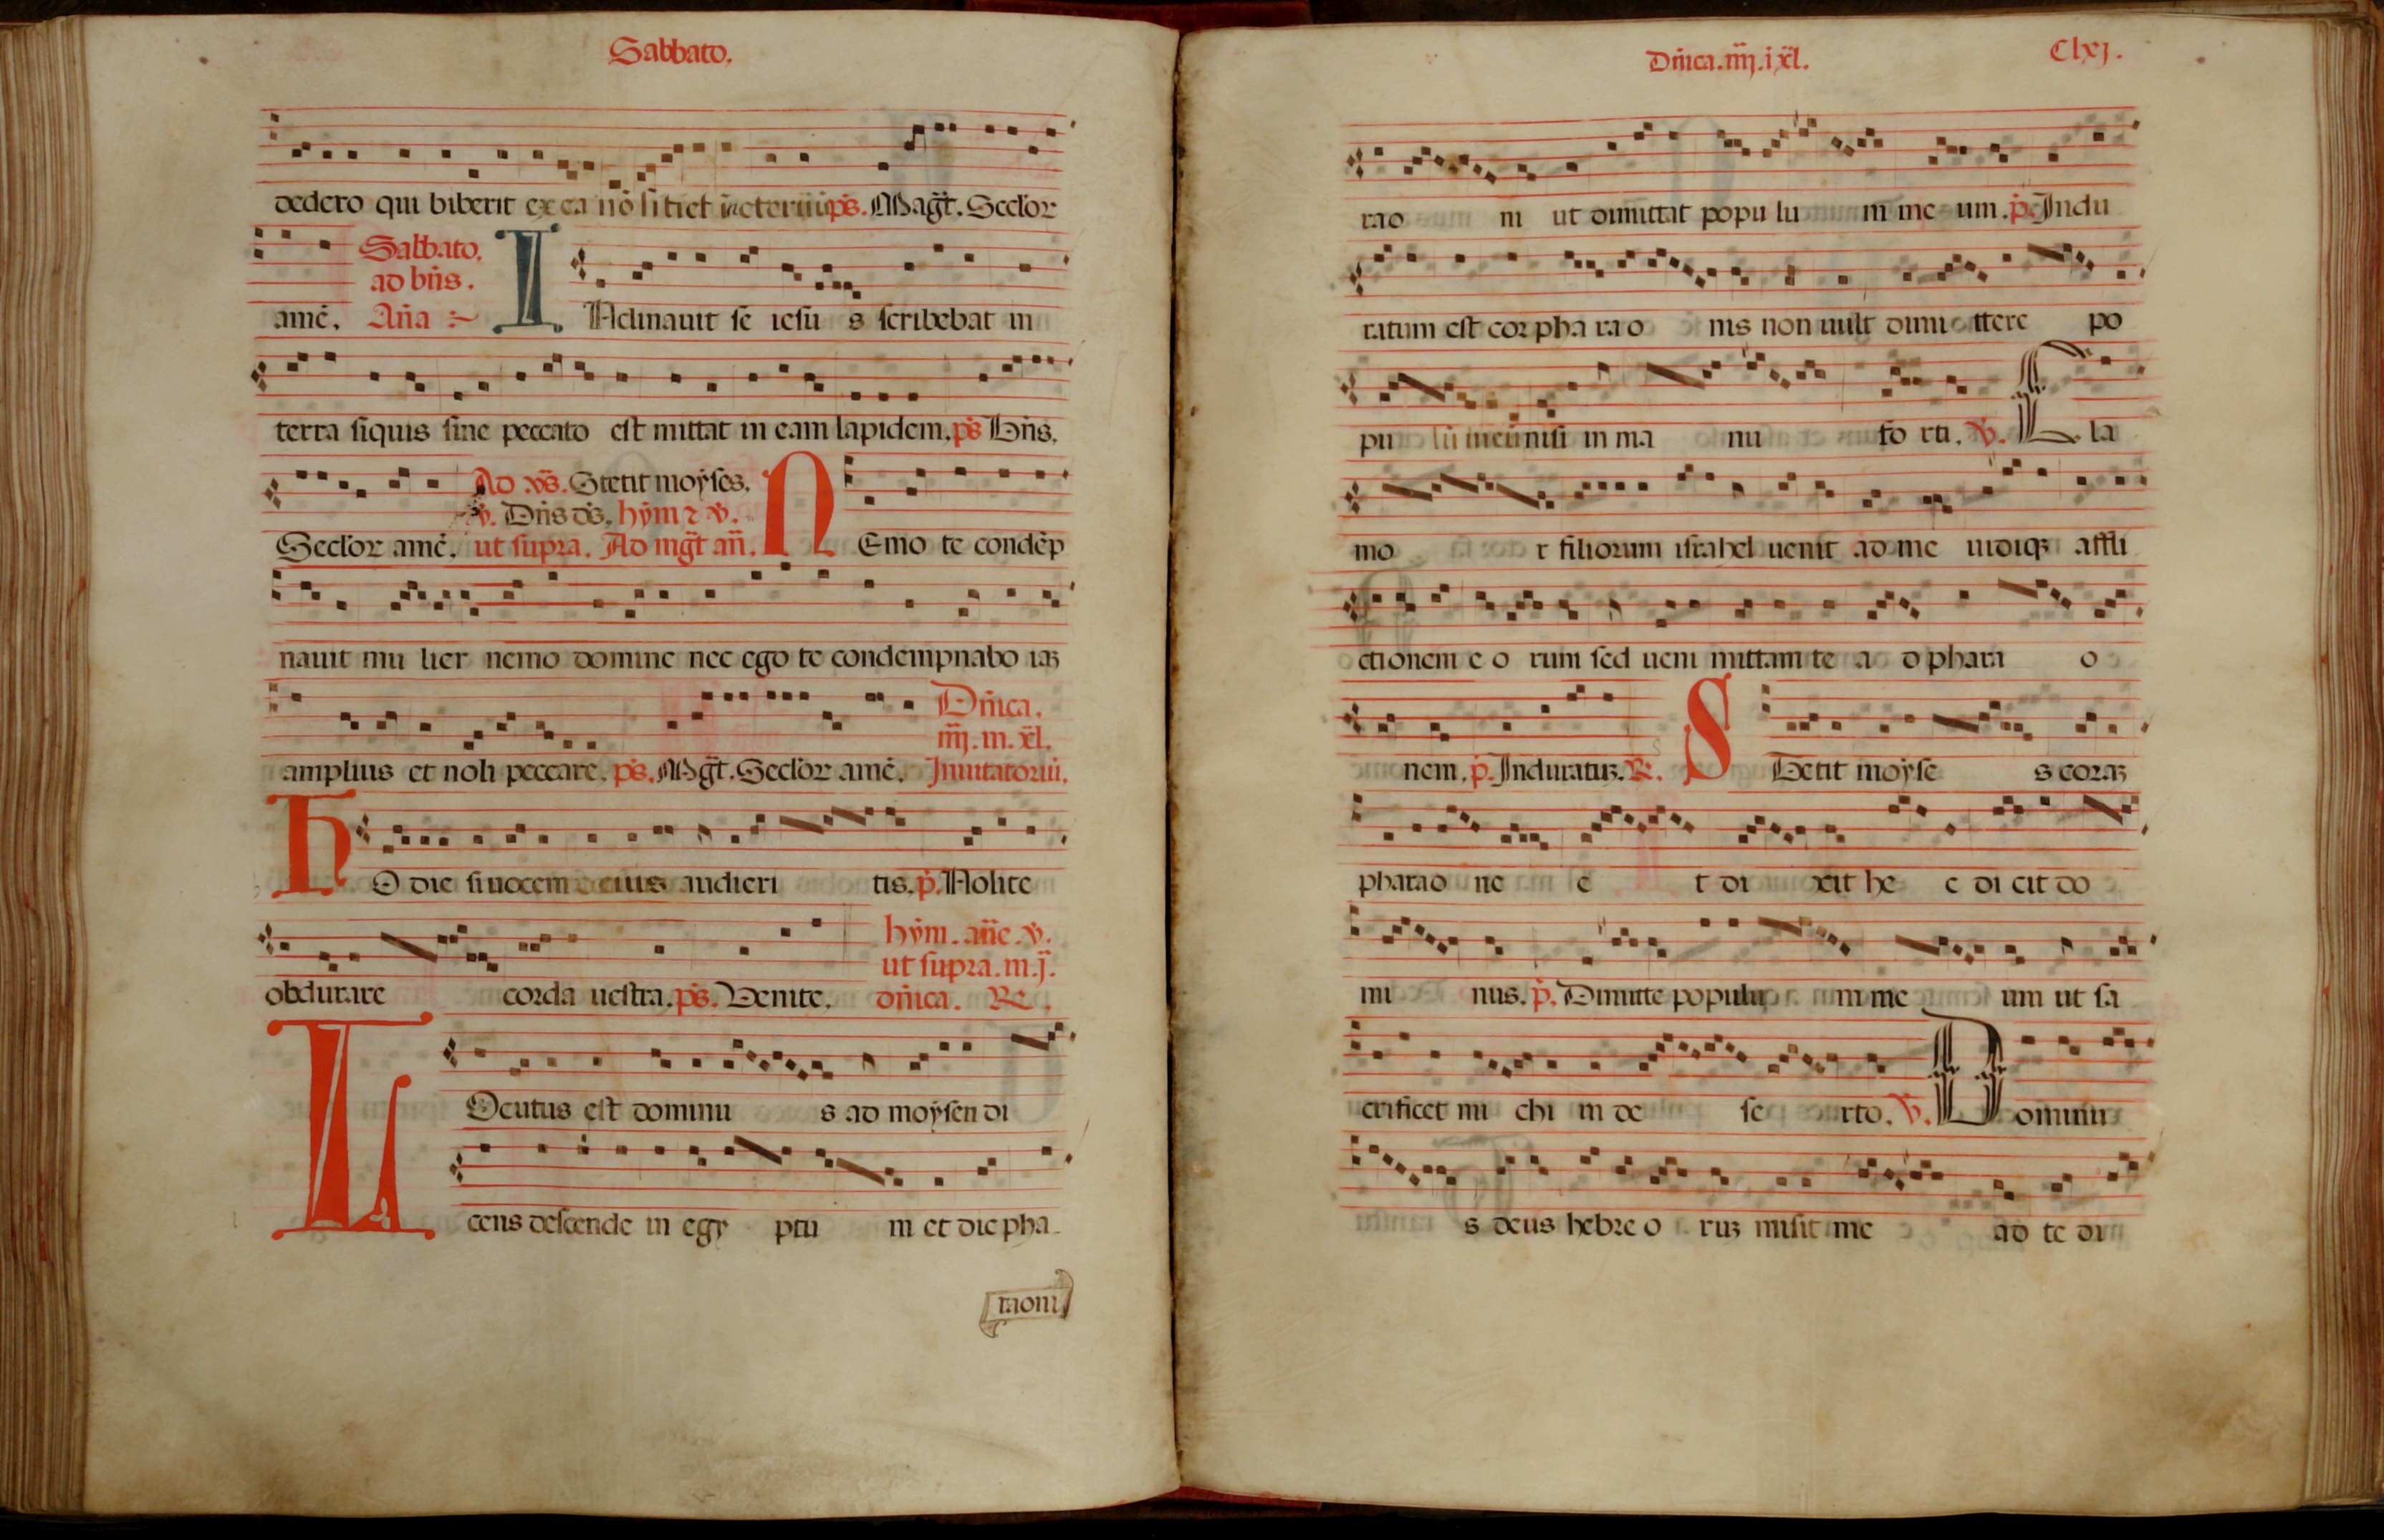 Sabbato.
dedero qui biberit ex ea nō sitiet ineternū ps. Magt̄. Secl'or
Sabbato.
ad bn̄s.
amē. Añā
I Nclinauit se iesu s scribebat in
terra siquis sine peccato est mittat in eam lapidem. ps Bn̄s.
Ad vs̄. Stetit moyses.
v. Dn̄s ds̄. hym̄ ꝛ v.
Secl'or amē. ut supra. Ad mgt̄ an̄. N Emo te condēp
nauit mu lier nemo domine nec ego te condempnabo iaꝫ
Dn̄ica.
iiij. in. xl̄.
amplius et noli peccare. ps. Mgt̄. Secl'or amē. Inuitatoriū.
H O die si uocem eius audieri tis. p̄. Nolite
hym̄. an̄e. v.
ut supra. in. j.
obdurare corda uestra. ps. Venite. dn̄ica. R
L Ocutus est dominu s ad moysen di
cens descende in egy ptu m et dic pha
raoni
Dn̄ica. iiij. i xl̄.
Clxj.
rao ni ut dimittat popu lu m me um. p̄. Indu
ratum est cor pha ra o nis non uult dimi ttere po
pu lū meū nisi in ma nu fo rti. v. C la
mo r filiorum israhel uenit ad me uidiqꝫ affli
ctionem e o rum sed ueni mittam te a d phara o
nem. p̄. Induratuꝫ. R. S Tetit moyse s coraꝫ
pharao ne e t di xit he c di cit do
mi nus. p̄. Dimitte populu m me um ut sa
crificet mi chi in de se rto. v. D ominu
s deus hebre o ruꝫ misit me ad te di